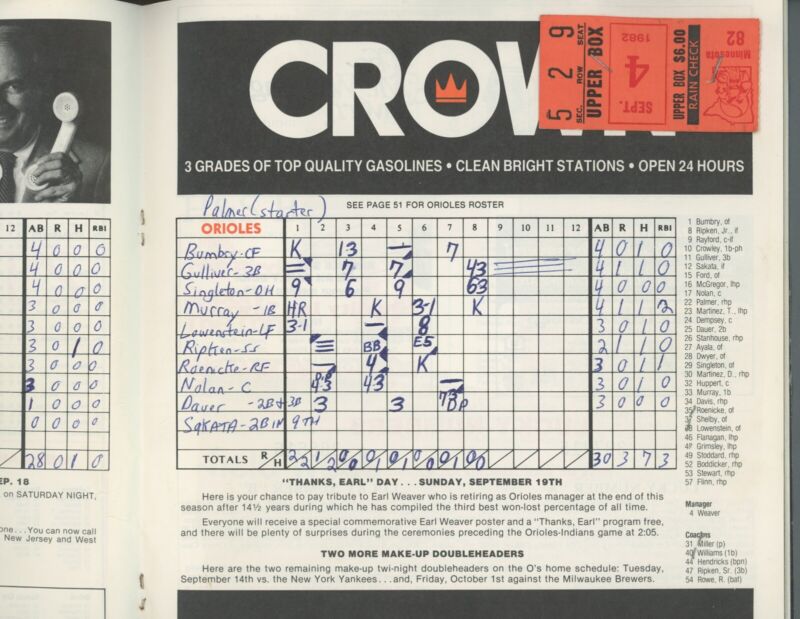 CROWN
3 GRADES OF TOP QUALITY GASOLINES • CLEAN BRIGHT STATIONS • OPEN 24 HOURS
5 2 9
SEC. ROW SEAT
UPPER BOX
SEPT. 4 1982
UPPER BOX $6.00
RAIN CHECK
Minnesota
82
Palmer (starter)
SEE PAGE 51 FOR ORIOLES ROSTER
12 AB R H RBI
4 0 0 0
4 0 0 0
4 0 0 0
3 0 0 0
3 0 0 0
3 0 1 0
3 0 0 0
3 0 0 0
1 0 0 0
0 0 0 0
28 0 1 0
ORIOLES 1 2 3 4 5 6 7 8 9 10 11 12 AB R H RBI
Bumbry-CF K 13 7 4 0 1 0
Gulliver-3B 7 7 43 4 1 1 0
Singleton-DH 9 6 9 63 4 0 0 0
Murray-1B HR K 3-1 K 4 1 1 2
Lowenstein-LF 3-1 8 3 0 1 0
Ripken-SS BB E5 2 1 1 0
Roenicke-RF 4 K 3 0 1 1
Nolan-C 43 43 3 0 1 0
Dauer-2B+3B 3 3 DP 3 0 0 0
SAKATA-2B IN 9TH
TOTALS R H 2 2 1 2 0 0 0 1 0 1 0 0 0 1 0 0 30 3 7 3
1 Bumbry, of
8 Ripken, Jr., if
9 Rayford, c-if
10 Crowley, 1b-ph
11 Gulliver, 3b
12 Sakata, if
15 Ford, of
16 McGregor, lhp
17 Nolan, c
22 Palmer, rhp
23 Martinez, T., lhp
24 Dempsey, c
25 Dauer, 2b
26 Stanhouse, rhp
27 Ayala, of
28 Dwyer, of
29 Singleton, of
30 Martinez, D., rhp
32 Huppert, c
33 Murray, 1b
34 Davis, rhp
35 Roenicke, of
37 Shelby, of
38 Lowenstein, of
46 Flanagan, lhp
47 Grimsley, lhp
49 Stoddard, rhp
52 Boddicker, rhp
53 Stewart, rhp
57 Flinn, rhp
Manager
4 Weaver
Coaches
31 Miller (p)
40 Williams (1b)
44 Hendricks (bpn)
47 Ripken, Sr. (3b)
54 Rowe, R. (bat)
"THANKS, EARL" DAY . . . SUNDAY, SEPTEMBER 19TH
Here is your chance to pay tribute to Earl Weaver who is retiring as Orioles manager at the end of this
season after 14½ years during which he has compiled the third best won-lost percentage of all time.
Everyone will receive a special commemorative Earl Weaver poster and a "Thanks, Earl" program free,
and there will be plenty of surprises during the ceremonies preceding the Orioles-Indians game at 2:05.
TWO MORE MAKE-UP DOUBLEHEADERS
Here are the two remaining make-up twi-night doubleheaders on the O's home schedule: Tuesday,
September 14th vs. the New York Yankees . . . and, Friday, October 1st against the Milwaukee Brewers.
EP. 18
on SATURDAY NIGHT,
one . . . You can now call
New Jersey and West